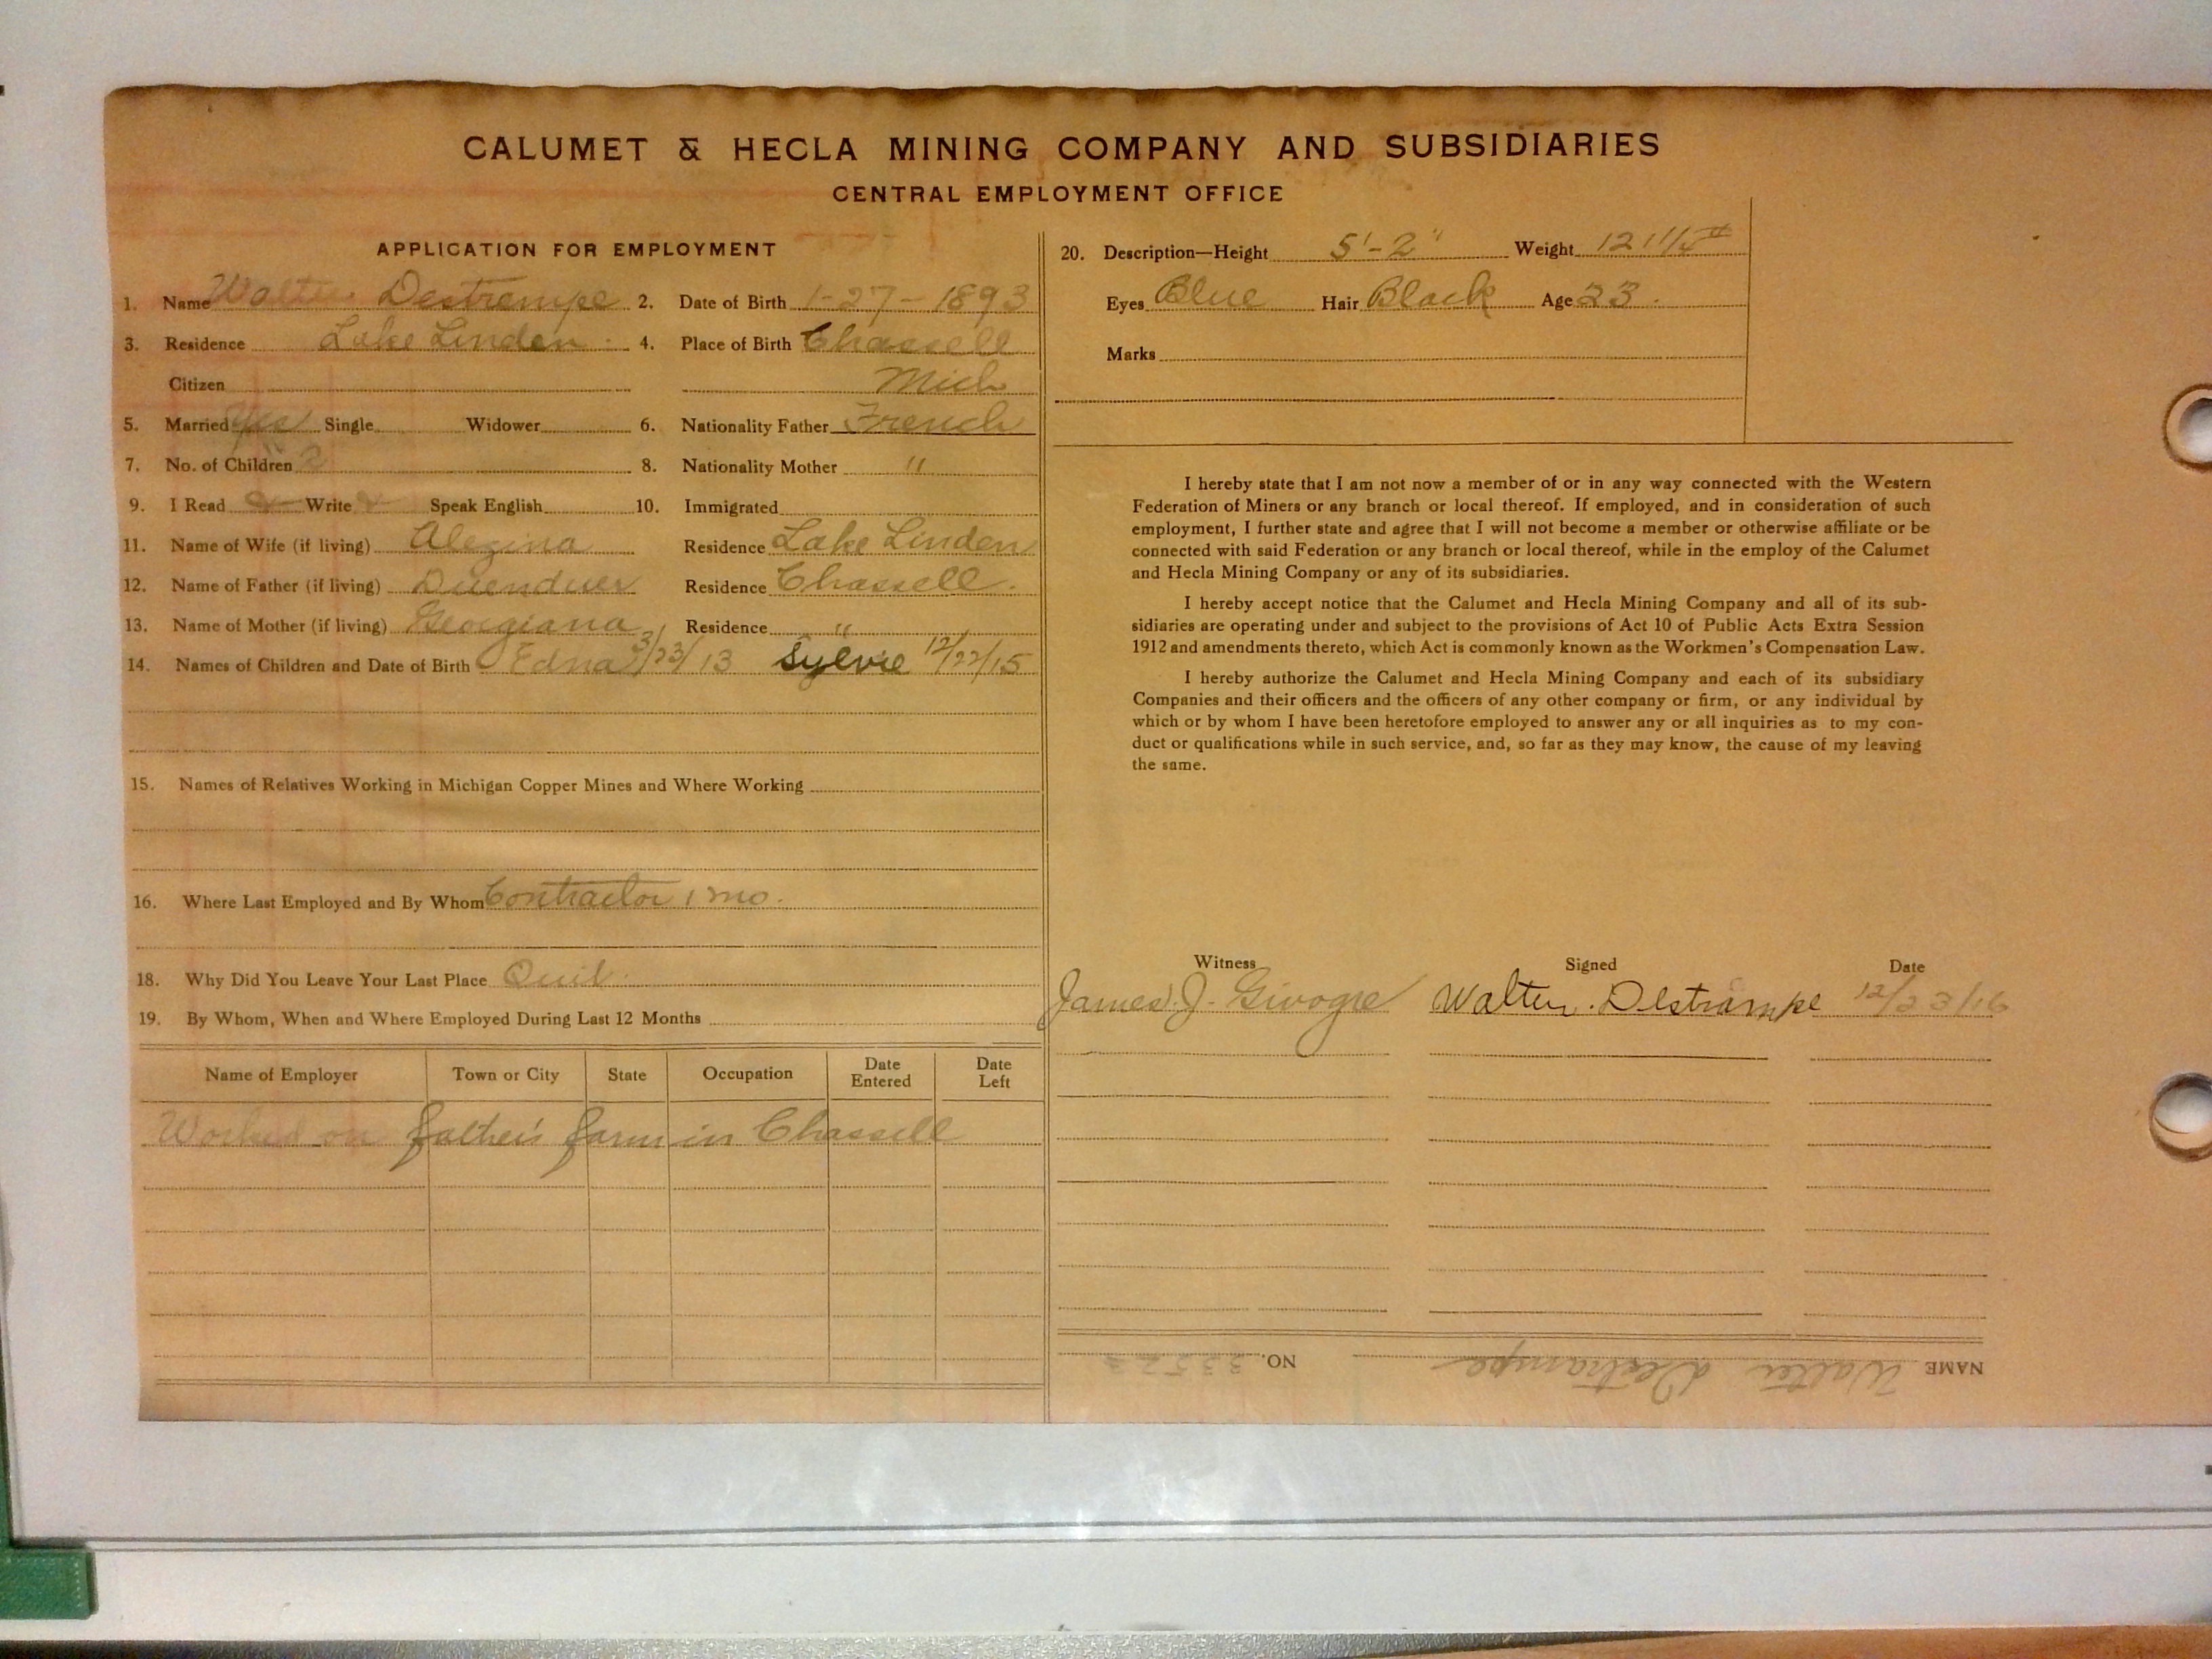 CALUMET & HECLA MINING COMPANY AND SUBSIDIARIES
CENTRAL EMPLOYMENT OFFICE
APPLICATION FOR EMPLOYMENT
1. Name Walter Destrempe 2. Date of Birth 1-27-1893
3. Residence Lake Linden 4. Place of Birth Chassell
Citizen Mich
5. Married Yes Single Widower 6. Nationality Father French
7. No. of Children 2 8. Nationality Mother "
9. I Read Write Speak English 10. Immigrated
11. Name of Wife (if living) Alezina Residence Lake Linden
12. Name of Father (if living) Residence Chassell.
13. Name of Mother (if living) Georgiana Residence "
14. Names of Children and Date of Birth Edna 3/23/13 Sylvie 12/22/15
15. Names of Relatives Working in Michigan Copper Mines and Where Working
16. Where Last Employed and By Whom Contractor 1 mo.
18. Why Did You Leave Your Last Place Quit.
19. By Whom, When and Where Employed During Last 12 Months
Name of Employer Town or City State Occupation Date Entered Date Left
Worked on father's farm in Chassell
20. Description—Height 5'-2" Weight
Eyes Blue Hair Black Age 23.
Marks
I hereby state that I am not now a member of or in any way connected with the Western
Federation of Miners or any branch or local thereof. If employed, and in consideration of such
employment, I further state and agree that I will not become a member or otherwise affiliate or be
connected with said Federation or any branch or local thereof, while in the employ of the Calumet
and Hecla Mining Company or any of its subsidiaries.
I hereby accept notice that the Calumet and Hecla Mining Company and all of its sub-
sidiaries are operating under and subject to the provisions of Act 10 of Public Acts Extra Session
1912 and amendments thereto, which Act is commonly known as the Workmen's Compensation Law.
I hereby authorize the Calumet and Hecla Mining Company and each of its subsidiary
Companies and their officers and the officers of any other company or firm, or any individual by
which or by whom I have been heretofore employed to answer any or all inquiries as to my con-
duct or qualifications while in such service, and, so far as they may know, the cause of my leaving
the same.
Witness Signed Date
James J. Walter Destrampe 12/23/16
NAME Walter Destrampe NO.